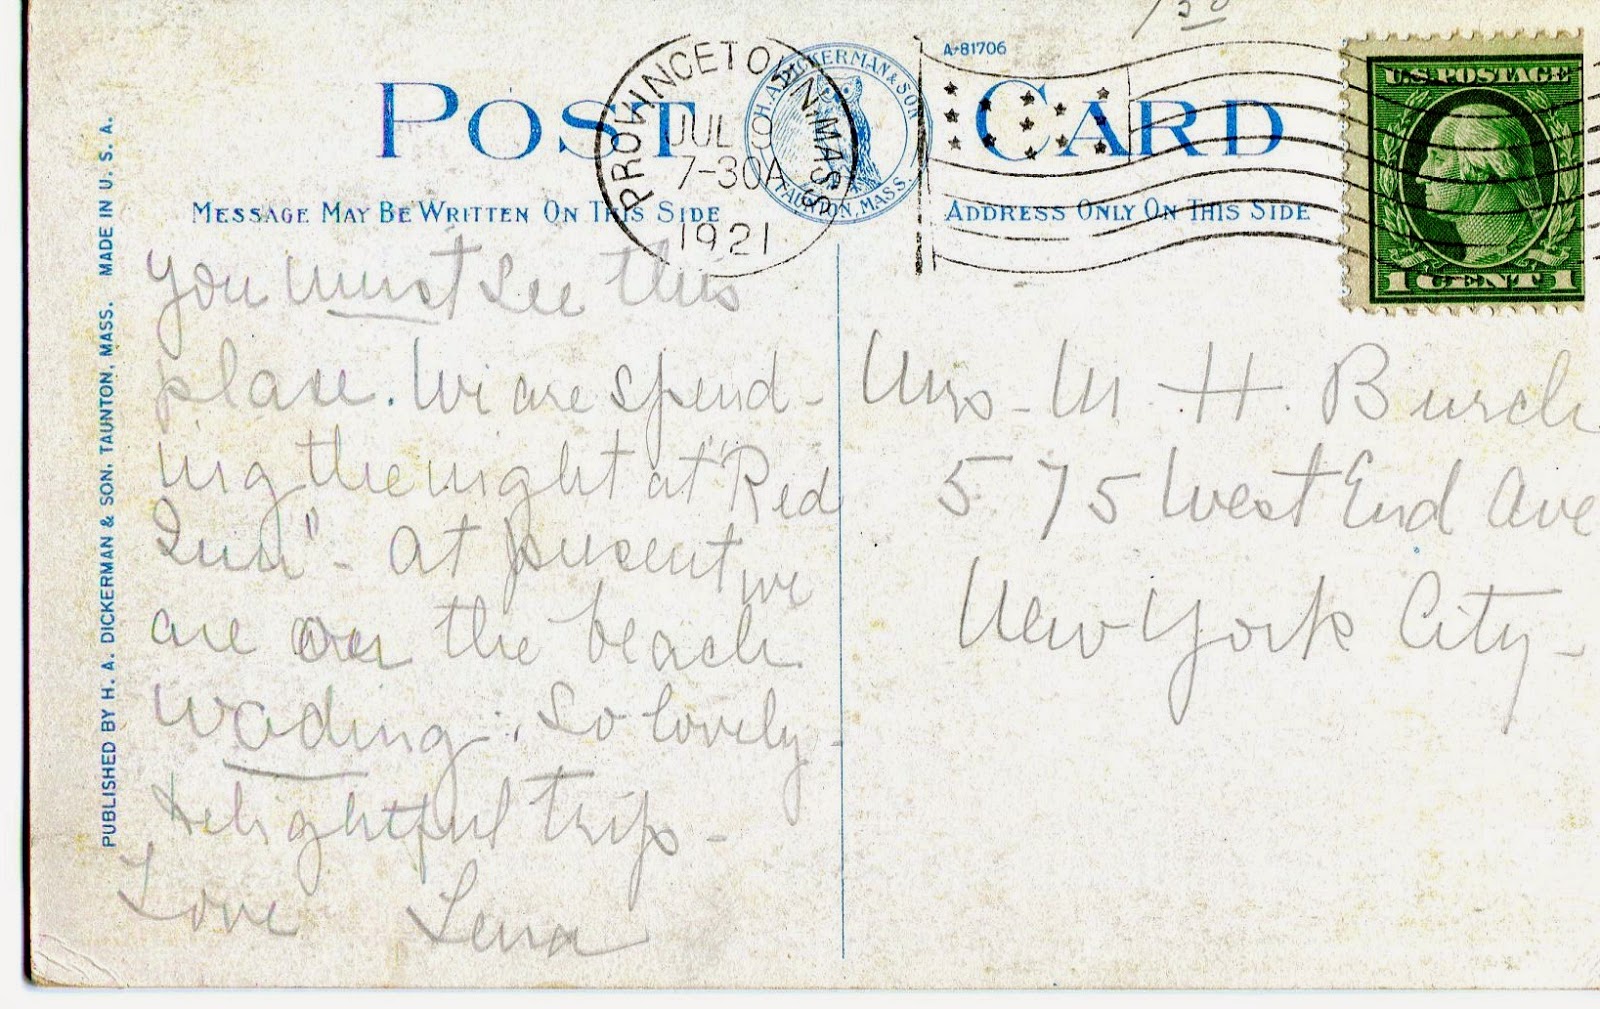 1 50
A-81706
POST CARD
H. A. DICKERMAN & SON
TAUNTON, MASS.
PROVINCETOWN, MASS.
JUL 9
7-30A
1921
U.S. POSTAGE
1 CENT 1
MESSAGE MAY BE WRITTEN ON THIS SIDE
ADDRESS ONLY ON THIS SIDE
PUBLISHED BY H. A. DICKERMAN & SON, TAUNTON, MASS. MADE IN U. S. A.
You must see this
place. We are spend-
ing the night at "Red
Inn" - At present we
are on the beach
wading. So lovely -
delightful trip -
Love Lena
Mrs - M. H. Burch
575 West End Ave
New York City -